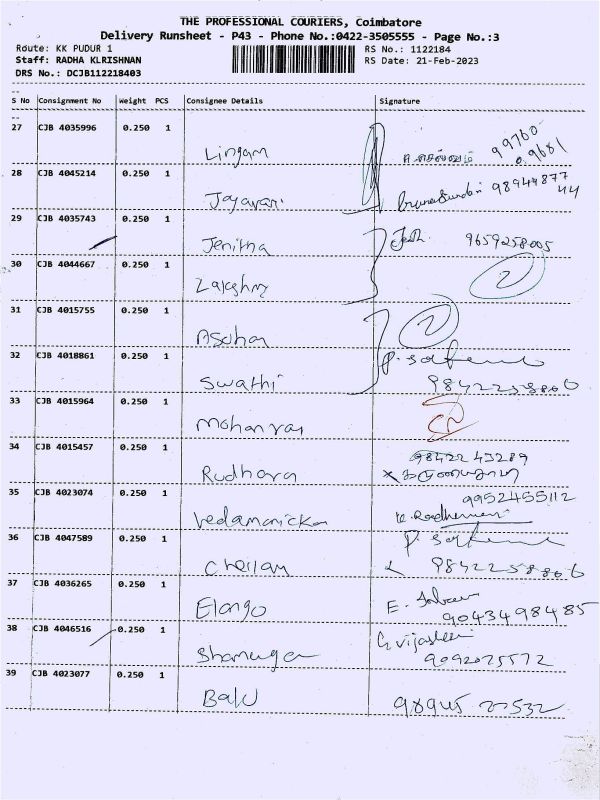 THE PROFESSIONAL COURIERS, Coimbatore
Delivery Runsheet - P43 - Phone No.:0422-3505555 - Page No.:3
Route: KK PUDUR 1
RS No.: 1122184
Staff: RADHA KLRISHNAN
RS Date: 21-Feb-2023
DRS No.: DCJB112218403
S No Consignment No Weight PCS Consignee Details Signature
27 CJB 4035996 0.250 1
Lingam
99760
09681
28 CJB 4045214 0.250 1
98944877
44
29 CJB 4035743 0.250 1
Jenitha 9659258005
30 CJB 4044667 0.250 1
2
Lakshmy
31 CJB 4015755 0.250 1
2
Asohan
32 CJB 4018861 0.250 1
Swathi
33 CJB 4015964 0.250 1
mohanraj
34 CJB 4015457 0.250 1
9842243289
Rudhara
35 CJB 4023074 0.250 1
9952455112
Vedamanicka
36 CJB 4047589 0.250 1
37 CJB 4036265 0.250 1
Elango E.
9043498485
38 CJB 4046516 0.250 1
Shanmuga
39 CJB 4023077 0.250 1
Balu 98945 27532